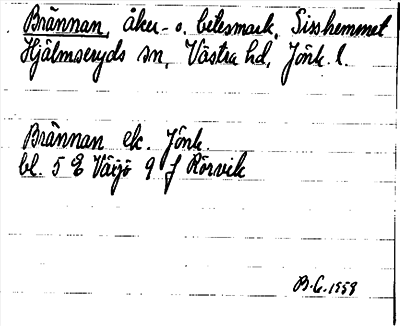 Brännan, åker- o. betesmark, Sisshemmet
Hjälmseryds sn, Västra hd, Jönk. l.
Brännan ek. Jönk.
bl. 5 E Växjö 9 f Rörvik
B.G. 1959